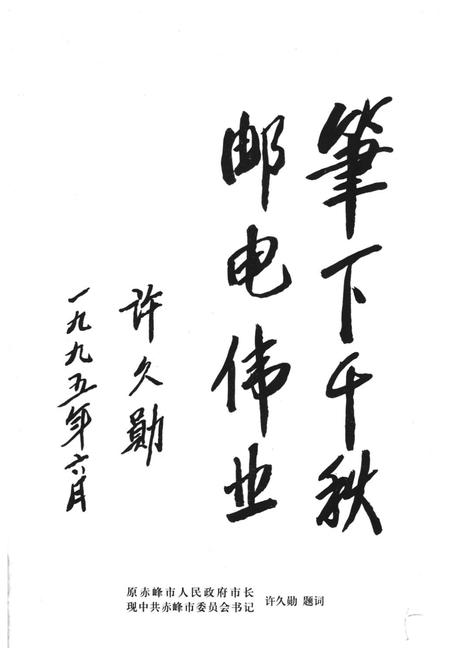 筆下千秋
邮电伟业
许久勋
一九九五年六月
原赤峰市人民政府市长
现中共赤峰市委员会书记
许久勋 题词